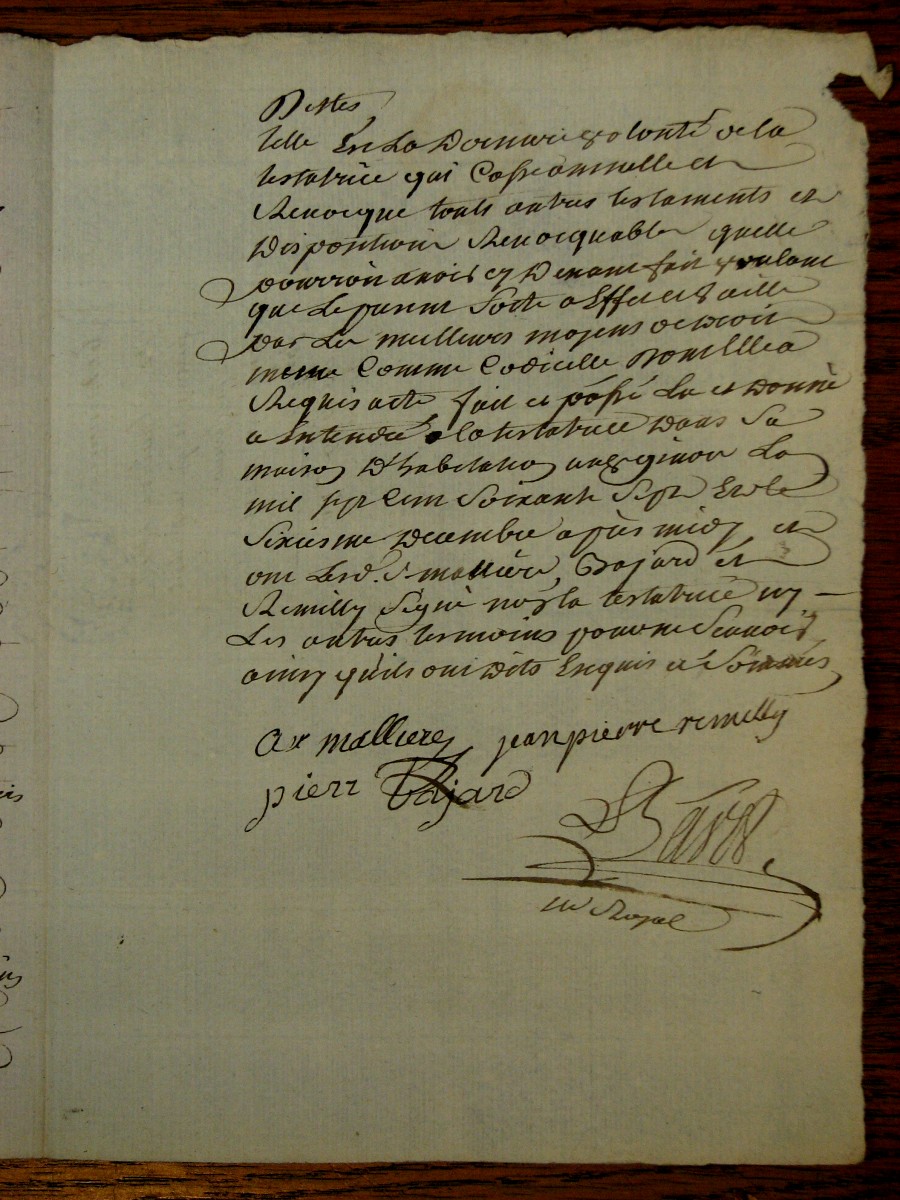 Dettes
telle Est La Derniere volonté de la
testatrice qui Casse annulle et
Revocque touts autres testaments et
Dispositions Revocquables quelle
pourroit avoir cy Devant fait voulant
que Le present Sorte a Effet et vaille
par Les meilleurs moyens de droit
meme Comme Codicelle
Requis acte fait et passé Lu et Donné
a Entendre a la testatrice Dans Sa
maison D'habitation La
mil sept Cent Soixante Sept Et le
Sixiesme Decembre apres midy et
ont Lesd. Sr mallière, Bajard et
Remilly Signé non la testatrice ny
Les autres temoins pour ne Scavoir
ainsy qu'ils ont Dits Enquis et Sommés
mallieres jean pierre remilly
pierr Bajard
Royal